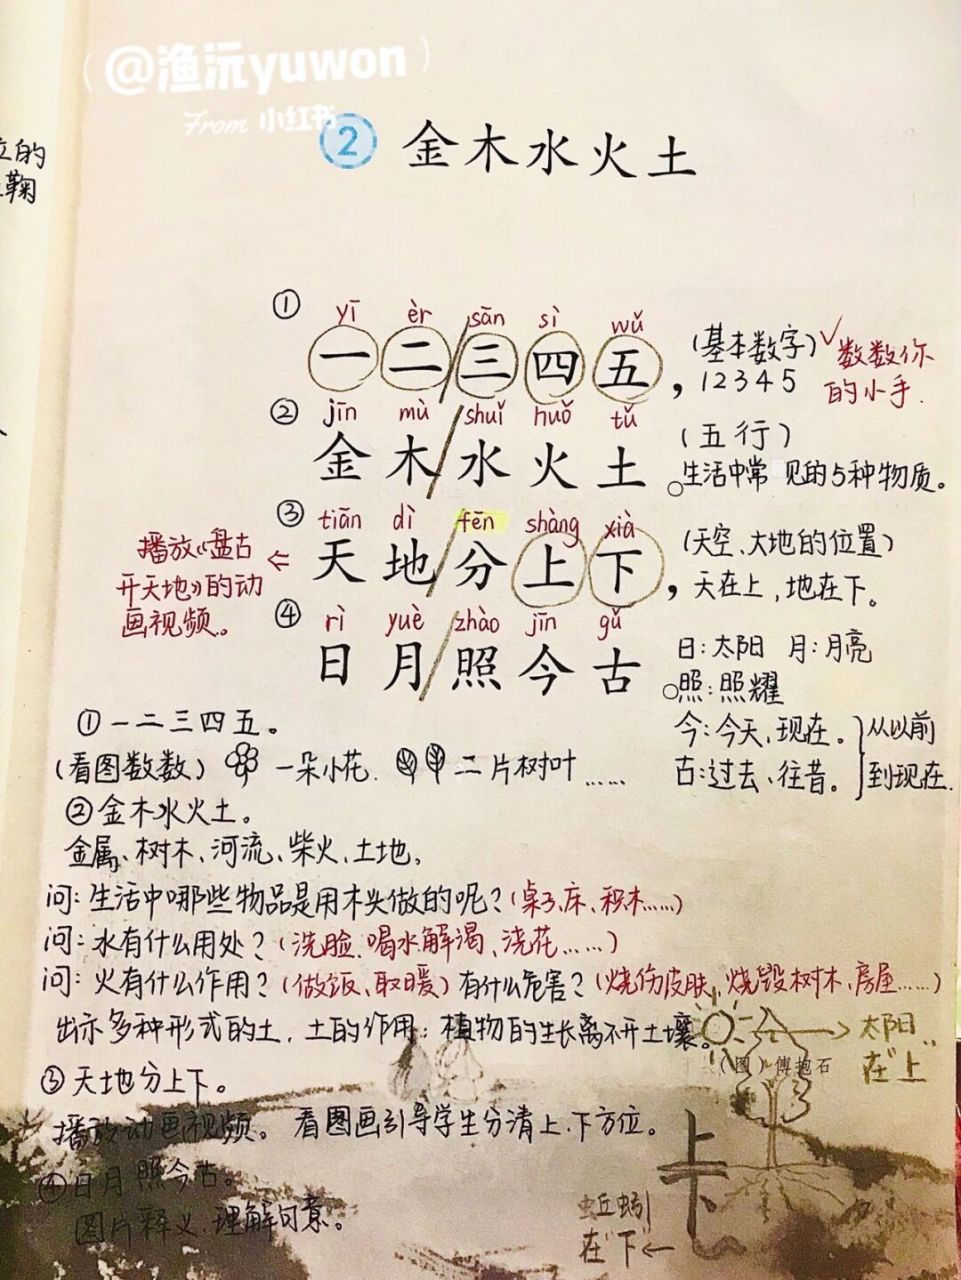 @渔沅yuwon
From 小红书
立的
鞠
2 金木水火土
① yī èr sān sì wǔ
一二/三四五，
(基本数字)✓数数你
12345 的小手.
② jīn mù shuǐ huǒ tǔ
金木/水火土。
(五行)
生活中常见的5种物质。
③ tiān dì fēn shàng xià
天地/分上下，
(天空、大地的位置)
天在上,地在下。
播放《盘古←
开天地》的动
画视频。
④ rì yuè zhào jīn gǔ
日月/照今古。
日:太阳 月:月亮
照:照耀
今:今天、现在。}从以前
古:过去、往昔。}到现在.
①一二三四五。
(看图数数) 一朵小花. 二片树叶......
②金木水火土。
金属、树木、河流、柴火、土地、
问:生活中哪些物品是用木头做的呢?(桌子、床、积木......)
问:水有什么用处?(洗脸、喝水解渴、浇花......)
问:火有什么作用?(做饭、取暖)有什么危害?(烧伤皮肤、烧毁树木、房屋......)
出示多种形式的土,土的作用:植物的生长离不开土壤。
→太阳
在"上"
(图)傅抱石
③天地分上下。
播放动画视频。看图画引导学生分清上、下方位。
上
下
④日月照今古。
图片释义、理解句意。
蚯蚓
在"下"←